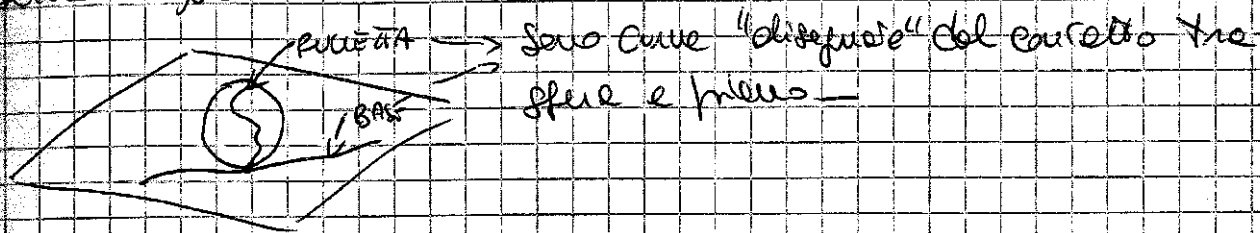 RULLETTA → sono curve "disegnate" dal contatto tra
BASE
sfera e piano —